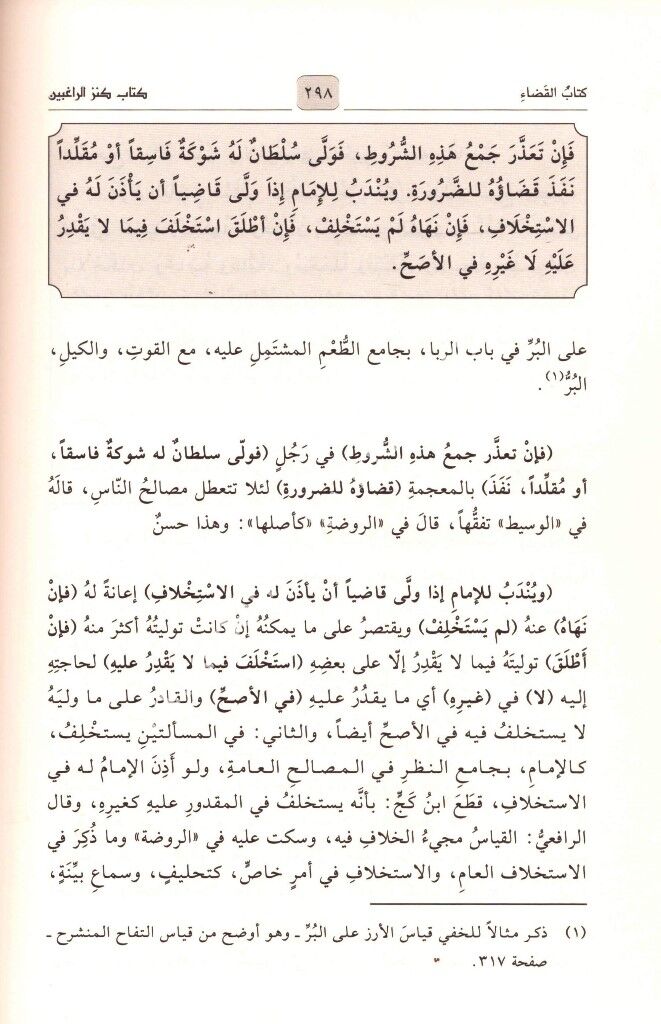 كتابُ القَضاءِ
٢٩٨
كتاب كنز الراغبين
فَإِنْ تَعَذَّرَ جَمْعُ هَذِهِ الشُّرُوطِ، فَوَلَّى سُلْطَانٌ لَهُ شَوْكَةٌ فَاسِقاً أوْ مُقَلِّداً
نَفَذَ قَضَاؤُهُ للضَّرُورَةِ. ويُنْدَبُ لِلإمَامِ إذَا وَلَّى قَاضِياً أن يَأْذَنَ لَهُ في
الاسْتِخْلَافِ، فَإِنْ نَهَاهُ لَمْ يَسْتَخْلِفْ، فَإِنْ أطْلَقَ اسْتَخْلَفَ فِيمَا لا يَقْدِرُ
عَلَيْهِ لَا غَيْرِهِ في الأصَحِّ.
على البُرِّ في باب الربا، بجامع الطُّعْمِ المشتَمِلِ عليه، مع القوتِ، والكيلِ،
البُرُّ(١).
(فإنْ تعذَّر جمعُ هذهِ الشُّروطِ) في رَجُلٍ (فولّى سلطانٌ له شوكةٌ فاسقاً،
أو مُقلِّداً، نَفَذَ) بالمعجمةِ (قضاؤهُ للضرورةِ) لئلا تتعطل مصالحُ النّاسِ، قالَهُ
في «الوسيط» تفقُّهاً، قالَ في «الروضةِ» «كأصلها»: وهذا حسنٌ
(ويُنْدَبُ للإمامِ إذا ولَّى قاضياً أنْ يأذَنَ له في الاسْتِخْلافِ) إعانةً لهُ (فإنْ
نَهَاهُ) عنهُ (لم يَسْتَخْلِفْ) ويقتصرُ على ما يمكنُهُ إنْ كانتْ توليتُهُ أكثرَ منهُ (فإنْ
أَطْلَقَ) توليتَهُ فيما لا يَقْدِرُ إلّا على بعضِهِ (استَخْلَفَ فيما لا يَقْدِرُ عليهِ) لحاجتِهِ
إليه (لا) في (غيرِهِ) أي ما يقدُرُ عليهِ (في الأصحِّ) والقادرُ على ما وليَهُ
لا يستخلفُ فيه في الأصحِّ أيضاً، والثاني: في المسألتيْنِ يستخْلِفُ،
كالإمامِ، بجامعِ النظرِ في المصالحِ العامةِ، ولو أَذِنَ الإمامُ له في
الاستخلافِ، قطَعَ ابنُ كَجٍّ: بأنَّه يستخلفُ في المقدورِ عليهِ كغيرِهِ، وقال
الرافعيُّ: القياسُ مجيءُ الخلافِ فيه، وسكت عليه في «الروضة» وما ذُكِرَ في
الاستخلافِ العامِ، والاستخلافِ في أمرٍ خاصٍّ، كتحليفٍ، وسماعِ بيِّنَةٍ،
(١) ذكر مثالاً للخفي قياسَ الأرز على البُرِّ ـ وهو أوضح من قياس التفاح المنشرح ـ
صفحة ٣١٧.